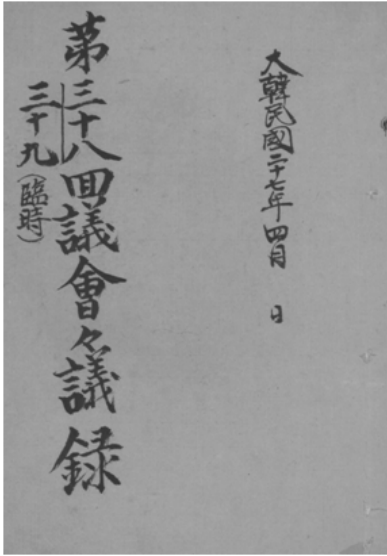 大韓民國二十七年四月　日
第三十八回議會々議錄
三十九(臨時)